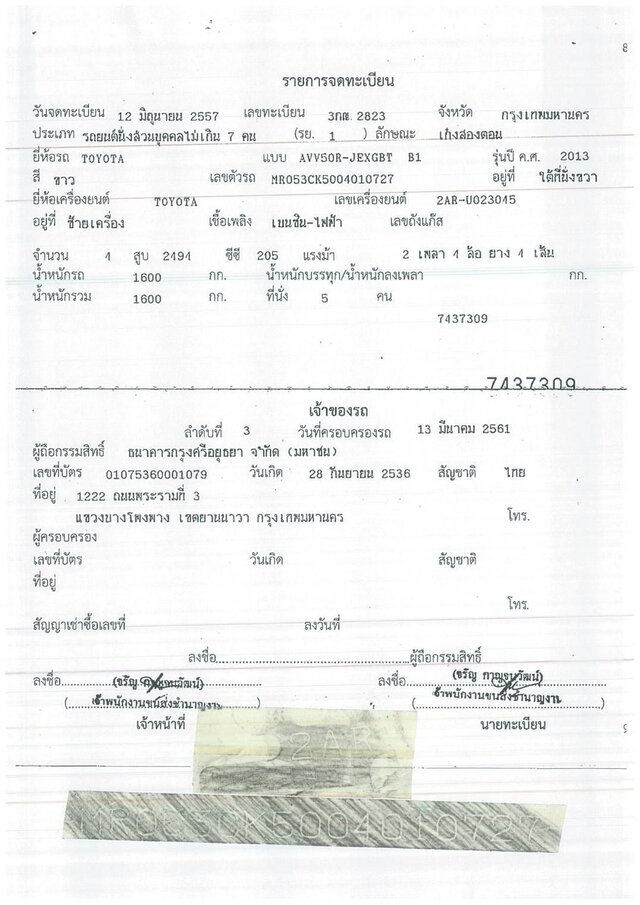 รายการจดทะเบียน
วันจดทะเบียน 12 มิถุนายน 2557 เลขทะเบียน 3กณ 2823 จังหวัด กรุงเทพมหานคร
ประเภท รถยนต์นั่งส่วนบุคคลไม่เกิน 7 คน (รย. 1 ) ลักษณะ เก๋งสองตอน
ยี่ห้อรถ TOYOTA แบบ AVV50R-JEXGBT B1 รุ่นปี ค.ศ. 2013
สี ขาว เลขตัวรถ MR053CK5004010727 อยู่ที่ ใต้ที่นั่งขวา
ยี่ห้อเครื่องยนต์ TOYOTA เลขเครื่องยนต์ 2AR-U023045
อยู่ที่ ซ้ายเครื่อง เชื้อเพลิง เบนซิน-ไฟฟ้า เลขถังแก๊ส
จำนวน 4 สูบ 2494 ซีซี 205 แรงม้า 2 เพลา 4 ล้อ ยาง 4 เส้น
น้ำหนักรถ 1600 กก. น้ำหนักบรรทุก/น้ำหนักลงเพลา กก.
น้ำหนักรวม 1600 กก. ที่นั่ง 5 คน
7437309
7437309
เจ้าของรถ
ลำดับที่ 3 วันที่ครอบครองรถ 13 มีนาคม 2561
ผู้ถือกรรมสิทธิ์ ธนาคารกรุงศรีอยุธยา จำกัด (มหาชน)
เลขที่บัตร 01075360001079 วันเกิด 28 กันยายน 2536 สัญชาติ ไทย
ที่อยู่ 1222 ถนนพระรามที่ 3
แขวงบางโพงพาง เขตยานนาวา กรุงเทพมหานคร โทร.
ผู้ครอบครอง
เลขที่บัตร วันเกิด สัญชาติ
ที่อยู่
โทร.
สัญญาเช่าซื้อเลขที่ ลงวันที่
ลงชื่อ ผู้ถือกรรมสิทธิ์
ลงชื่อ (จรัญ กาญจนวัฒน์) ลงชื่อ (จรัญ กาญจนวัฒน์)
(เจ้าพนักงานขนส่งชำนาญงาน) (เจ้าพนักงานขนส่งชำนาญงาน)
เจ้าหน้าที่ นายทะเบียน
2AR
MR053CK5004010727